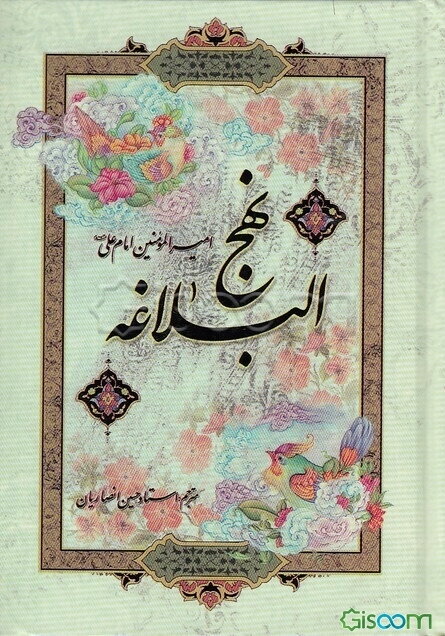 نهج
البلاغه
امیرالمؤمنین امام علی
مترجم: استاد حسین انصاریان
Gisoom